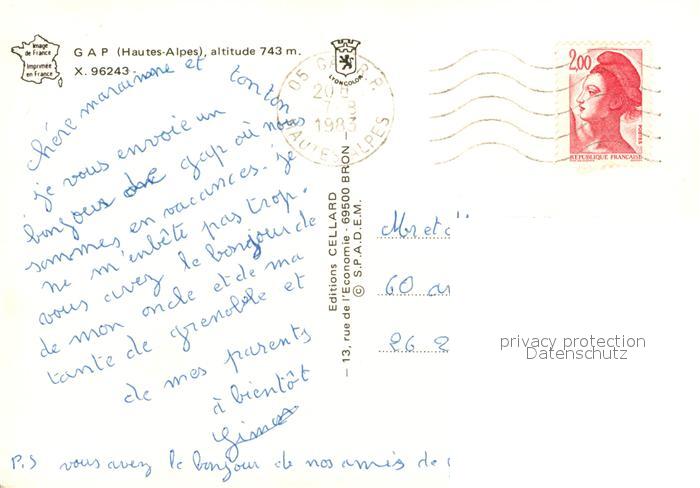 Image
de France
Imprimée
en France
GAP (Hautes-Alpes), altitude 743 m.
X. 96243
LYONCOLOR
05 GAP R.P.
20 H
1983
HAUTES-ALPES
2,00
POSTES
REPUBLIQUE FRANÇAISE
Editions CELLARD
– 13, rue de l'Economie - 69500 BRON –
© S.P.A.D.E.M.
chère marainne et tonton
je vous envoie un
bonjour de gap où nous
sommes en vacances. je
ne m'enbête pas trop.
vous avez le bonjour de
de mon oncle et de ma
tante de grenoble et
de mes parents
à bientôt
P.S vous avez le bonjour de nos amis de
Mr et
60
26 2
privacy protection
Datenschutz